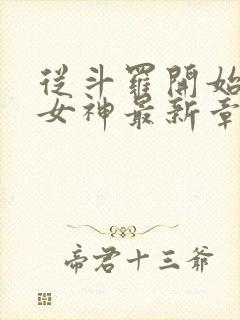 從斗羅開始
女神最新章
帝君十三爺